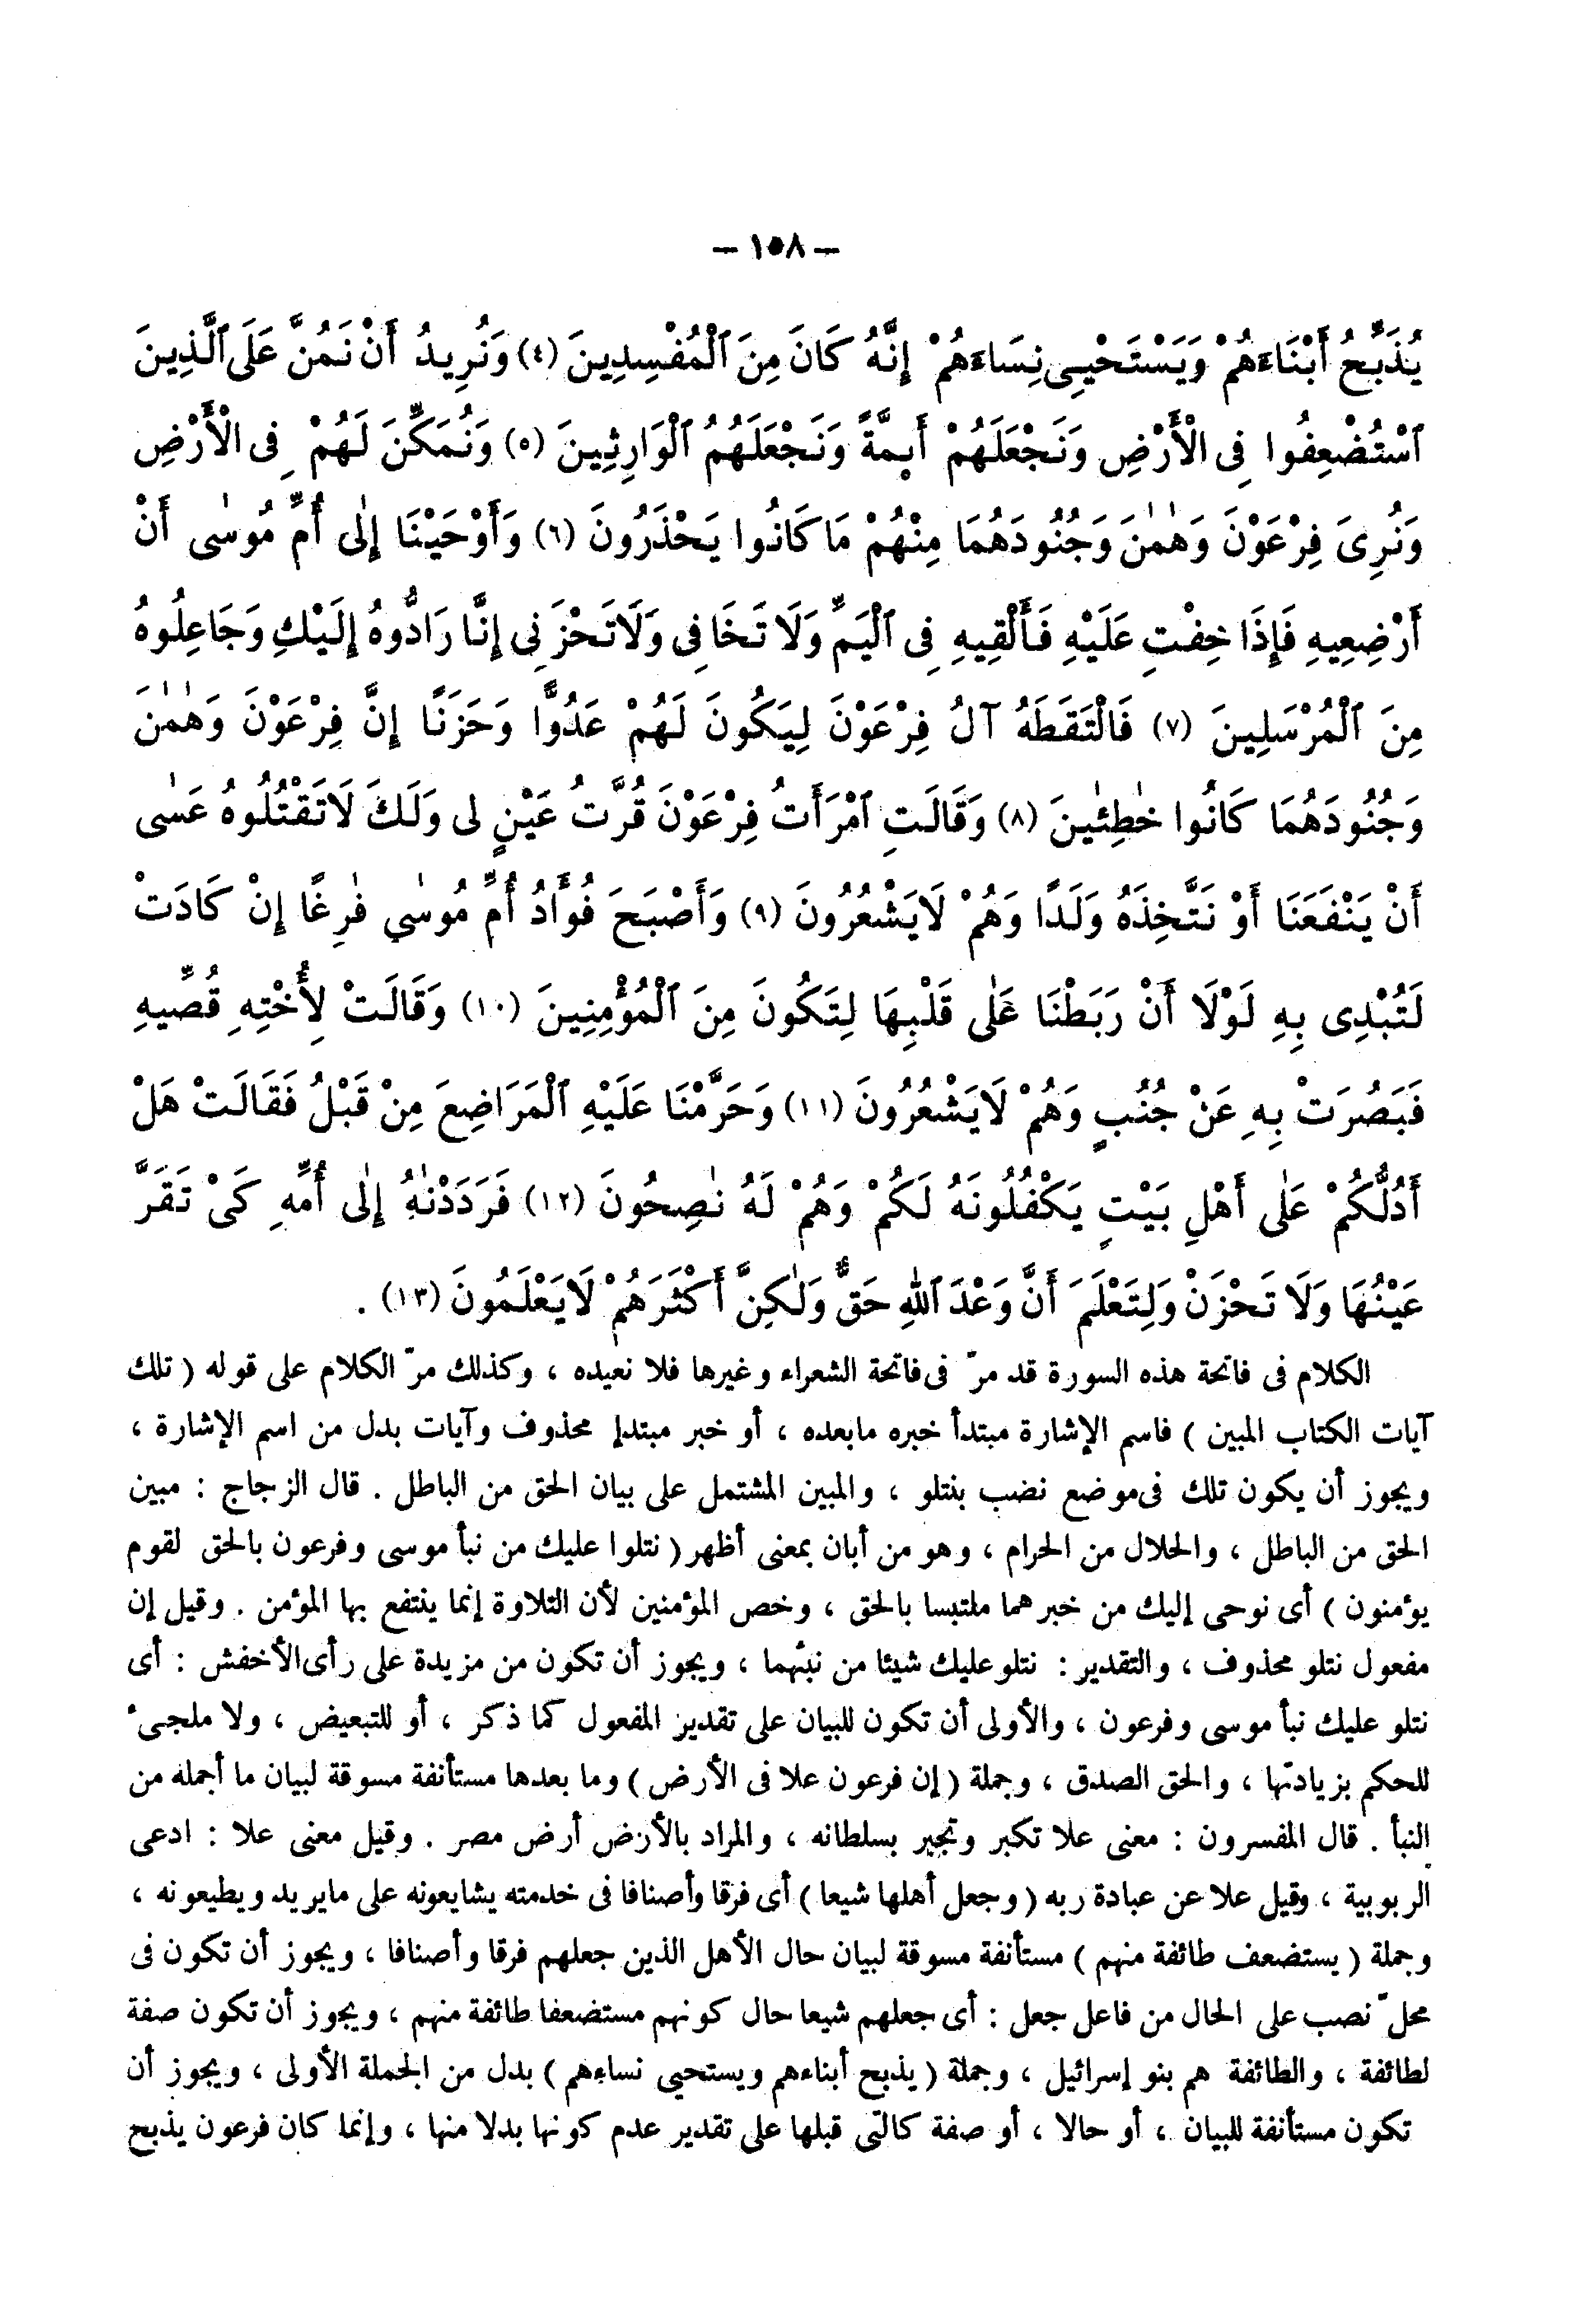 — ١٥٨ —
يُذَبِّحُ أَبْنَاءَهُمْ وَيَسْتَحْيِى نِسَاءَهُمْ إِنَّهُ كَانَ مِنَ ٱلْمُفْسِدِينَ (٤) وَنُرِيدُ أَنْ نَمُنَّ عَلَى ٱلَّذِينَ
ٱسْتُضْعِفُوا فِى الْأَرْضِ وَنَجْعَلَهُمْ أَيِمَّةً وَنَجْعَلَهُمُ ٱلْوَارِثِينَ (٥) وَنُمَكِّنَ لَهُمْ فِى الْأَرْضِ
وَنُرِىَ فِرْعَوْنَ وَهٰمٰنَ وَجُنُودَهُمَا مِنْهُمْ مَا كَانُوا يَحْذَرُونَ (٦) وَأَوْحَيْنَا إِلٰى أُمِّ مُوسٰى أَنْ
أَرْضِعِيهِ فَإِذَا خِفْتِ عَلَيْهِ فَأَلْقِيهِ فِى ٱلْيَمِّ وَلَا تَخَافِى وَلَا تَحْزَنِى إِنَّا رَادُّوهُ إِلَيْكِ وَجَاعِلُوهُ
مِنَ ٱلْمُرْسَلِينَ (٧) فَالْتَقَطَهُ آلُ فِرْعَوْنَ لِيَكُونَ لَهُمْ عَدُوًّا وَحَزَنًا إِنَّ فِرْعَوْنَ وَهٰمٰنَ
وَجُنُودَهُمَا كَانُوا خٰطِئٰينَ (٨) وَقَالَتِ ٱمْرَأَتُ فِرْعَوْنَ قُرَّتُ عَيْنٍ لِى وَلَكَ لَا تَقْتُلُوهُ عَسٰى
أَنْ يَنْفَعَنَا أَوْ نَتَّخِذَهُ وَلَدًا وَهُمْ لَا يَشْعُرُونَ (٩) وَأَصْبَحَ فُؤَادُ أُمِّ مُوسٰي فٰرِغًا إِنْ كَادَتْ
لَتُبْدِى بِهِ لَوْلَا أَنْ رَبَطْنَا عَلٰى قَلْبِهَا لِتَكُونَ مِنَ ٱلْمُؤْمِنِينَ (١٠) وَقَالَتْ لِأُخْتِهِ قُصِّيهِ
فَبَصُرَتْ بِهِ عَنْ جُنُبٍ وَهُمْ لَا يَشْعُرُونَ (١١) وَحَرَّمْنَا عَلَيْهِ ٱلْمَرَاضِعَ مِنْ قَبْلُ فَقَالَتْ هَلْ
أَدُلُّكُمْ عَلٰى أَهْلِ بَيْتٍ يَكْفُلُونَهُ لَكُمْ وَهُمْ لَهُ نٰصِحُونَ (١٢) فَرَدَدْنٰهُ إِلٰى أُمِّهِ كَىْ تَقَرَّ
عَيْنُهَا وَلَا تَحْزَنْ وَلِتَعْلَمَ أَنَّ وَعْدَ ٱللهِ حَقٌّ وَلٰكِنَّ أَكْثَرَهُمْ لَا يَعْلَمُونَ (١٣) .
الكلام فى فاتحة هذه السورة قد مرّ فى فاتحة الشعراء وغيرها فلا نعيده ، وكذلك مرّ الكلام على قوله ( تلك
آيات الكتاب المبين ) فاسم الإشارة مبتدأ خبره مابعده ، أو خبر مبتدإ محذوف وآيات بدل من اسم الإشارة ،
ويجوز أن يكون تلك فى موضع نضب بنتلو ، والمبين المشتمل على بيان الحق من الباطل . قال الزجاج : مبين
الحق من الباطل ، والحلال من الحرام ، وهو من أبان بمعنى أظهر ( نتلوا عليك من نبأ موسى وفرعون بالحق لقوم
يؤمنون ) أى نوحى إليك من خبرهما ملتبسا بالحق ، وخص المؤمنين لأن التلاوة إنما ينتفع بها المؤمن . وقيل إن
مفعول نتلو محذوف ، والتقدير : نتلو عليك شيئا من نبئهما ، ويجوز أن تكون من مزيدة على رأى الأخفش : أى
نتلو عليك نبأ موسى وفرعون ، والأولى أن تكون للبيان على تقدير المفعول كما ذكر ، أو للتبعيض ، ولا ملجئ
للحكم بزيادتها ، والحق الصدق ، وجملة ( إن فرعون علا فى الأرض ) وما بعدها مستأنفة مسوقة لبيان ما أجمله من
النبأ . قال المفسرون : معنى علا تكبر وتجبر بسلطانه ، والمراد بالأرض أرض مصر . وقيل معنى علا : ادعى
الربوبية ، وقيل علا عن عبادة ربه ( وجعل أهلها شيعا ) أى فرقا وأصنافا فى خدمته يشايعونه على مايريد ويطيعونه ،
وجملة ( يستضعف طائفة منهم ) مستأنفة مسوقة لبيان حال الأهل الذين جعلهم فرقا وأصنافا ، ويجوز أن تكون فى
محلّ نصب على الحال من فاعل جعل : أى جعلهم شيعا حال كونهم مستضعفا طائفة منهم ، ويجوز أن تكون صفة
لطائفة ، والطائفة هم بنو إسرائيل ، وجملة ( يذبح أبناءهم ويستحيى نساءهم ) بدل من الجملة الأولى ، ويجوز أن
تكون مستأنفة للبيان ، أو حالا ، أو صفة كالتى قبلها على تقدير عدم كونها بدلا منها ، وإنما كان فرعون يذبح